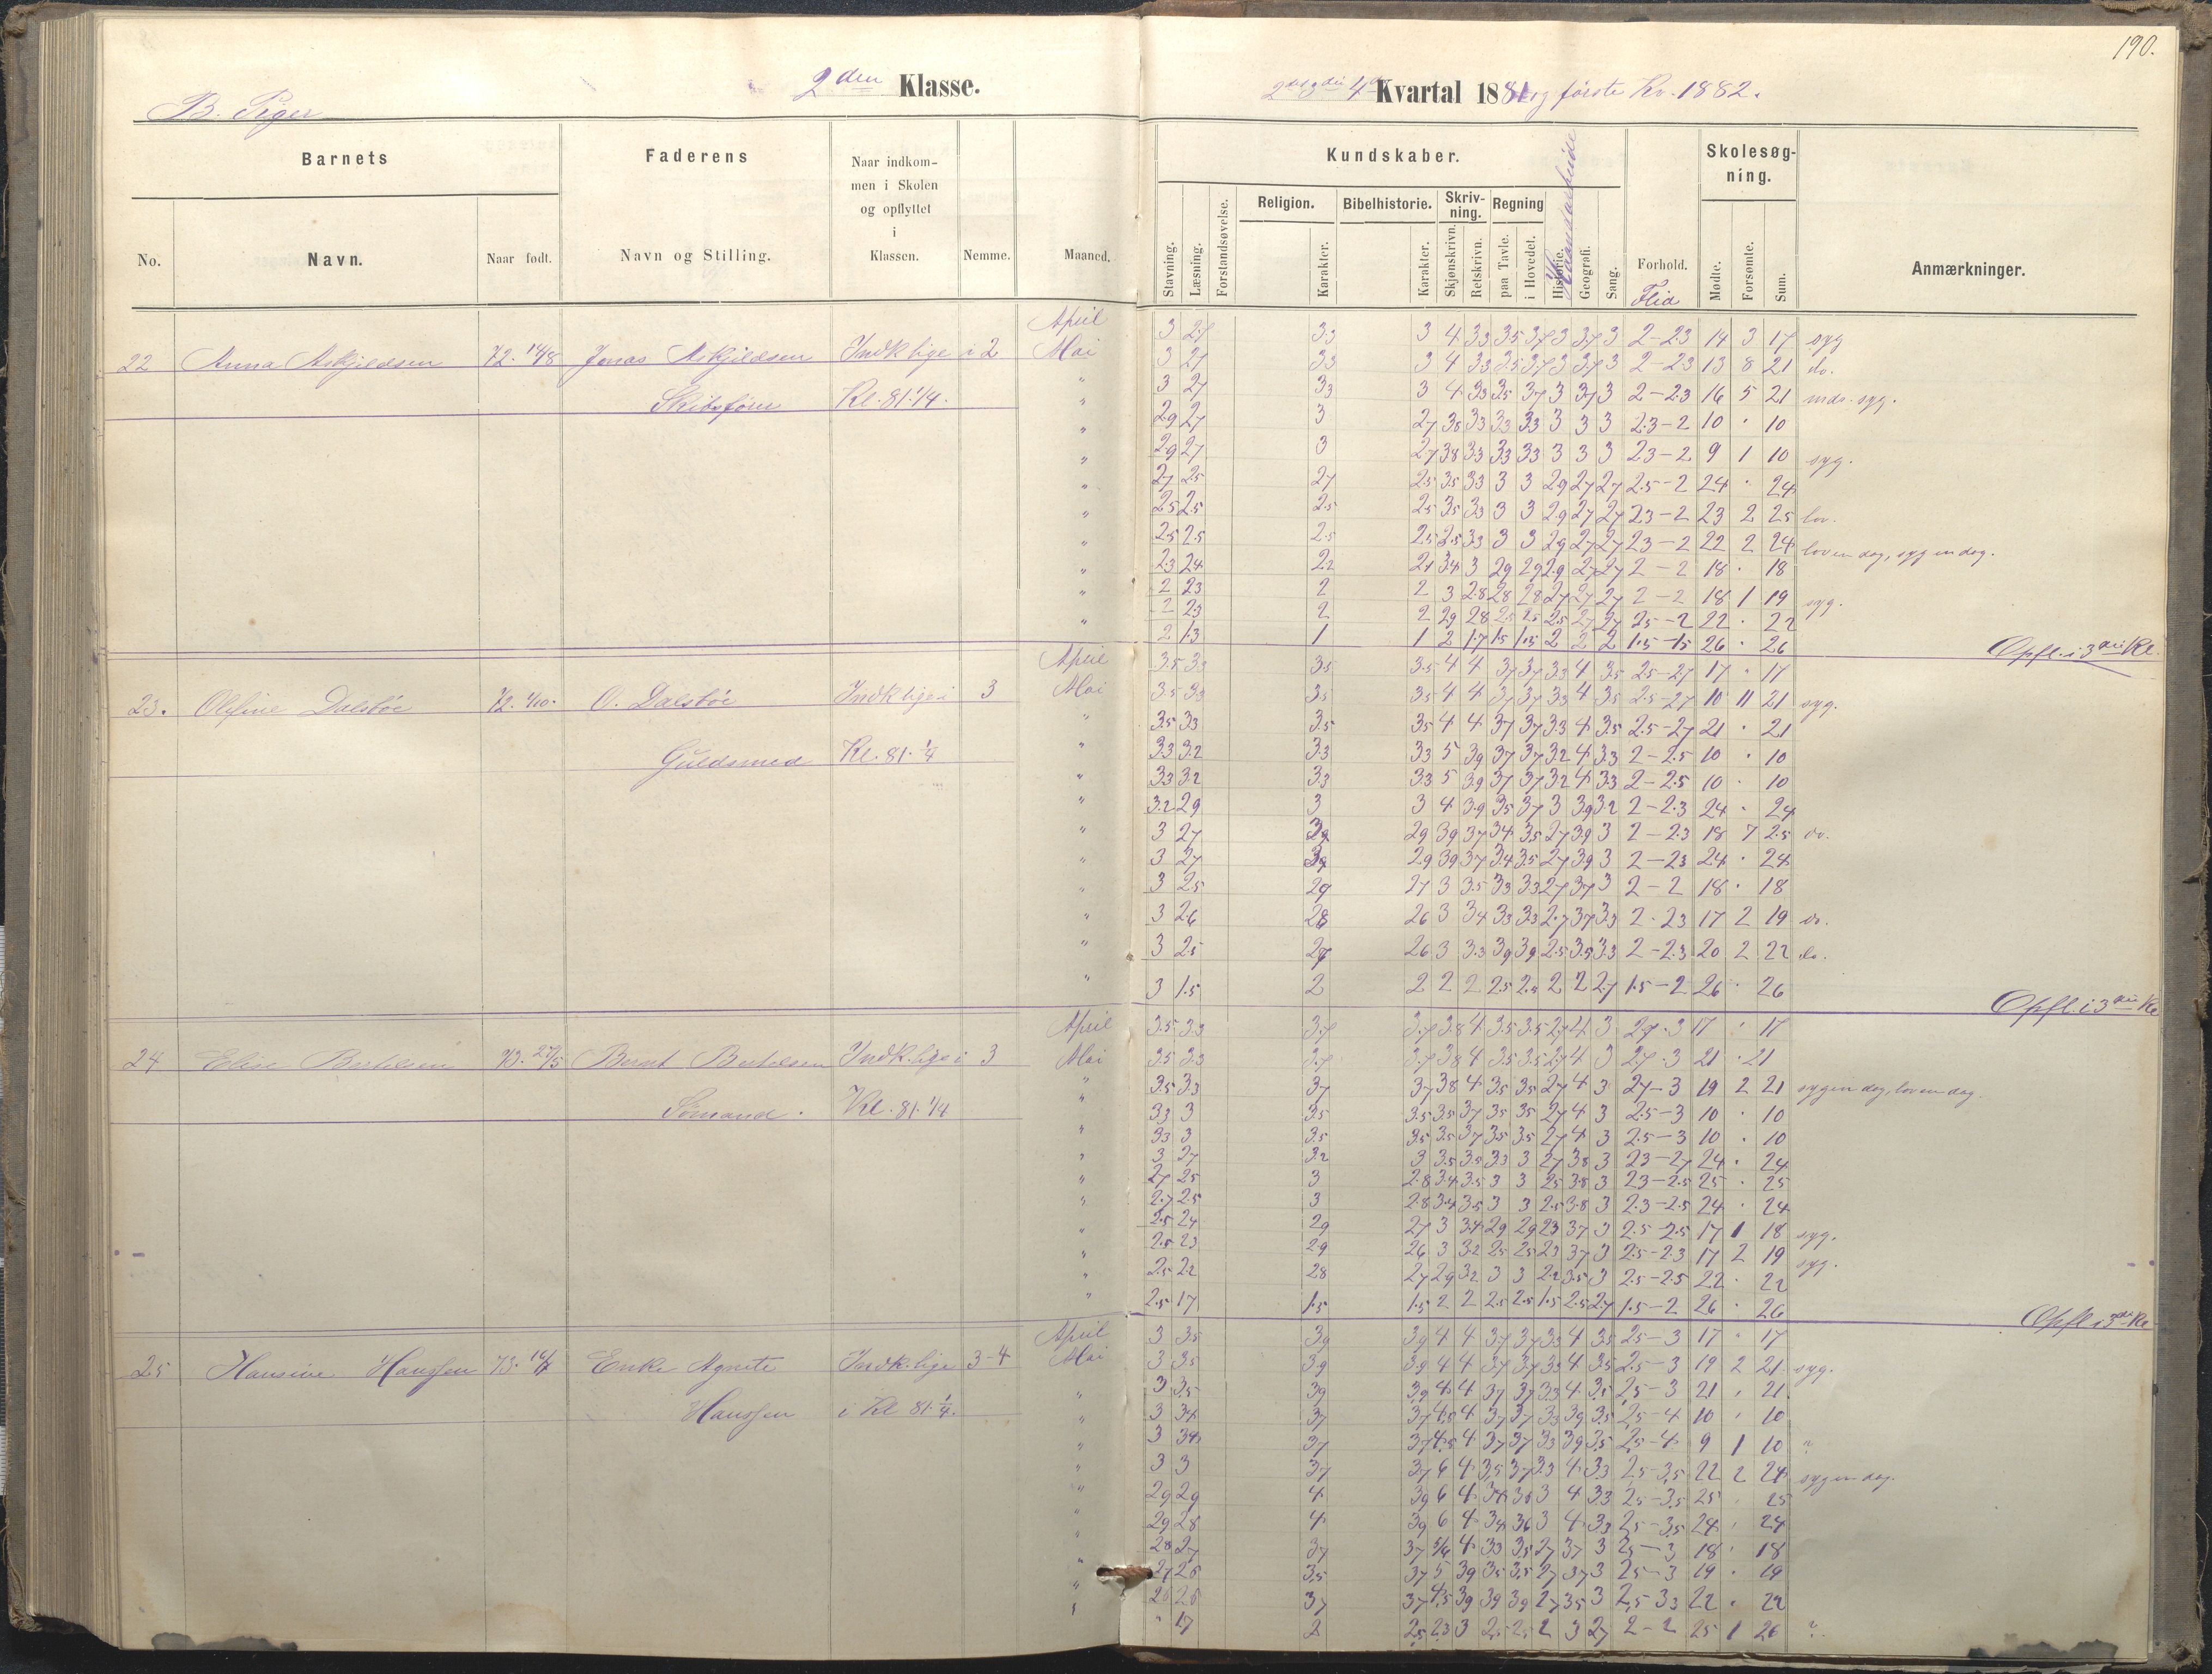 190.
B. Piger
2den Klasse.
Kvartal 1881 og første Kv. 1882.
Barnets
Faderens
Naar indkom-
men i Skolen
og opflyttet
i
Klassen.
No.
Navn.
Naar født.
Navn og Stilling.
Nemme.
Maaned.
Kundskaber.
Skolesøg-
ning.
Religion.
Bibelhistorie.
Skriv-
ning.
Regning
Stavning.
Læsning.
Forstandsøvelse.
Karakter.
Karakter.
Skjønskrivn.
Retskrivn.
paa Tavle.
i Hovedet.
Historie.
Haandarbeide
Geografi.
Sang.
Forhold.
Flid
Mødte.
Forsømte.
Sum.
Anmærkninger.
April
22 Anna Askjeldsen 72. 14/8 Jonas Askjeldsen Indk lige i 2 Mai
Skibsfører Kl. 81. 1/4.
3 27 33 3 4 33 35 37 3 37 3 2-23 14 3 17 syg
3 27 33 3 4 33 35 37 3 37 3 2-23 13 8 21 do.
3 27 33 3 4 33 35 37 3 37 3 2-23 16 5 21 syg.
29 27 3 27 38 33 33 33 3 3 3 23-2 10 · 10
29 27 3 27 38 33 33 33 3 3 3 23-2 9 1 10 syg.
27 25 27 25 35 33 3 3 29 27 27 25-2 24 · 24
25 25 25 25 35 33 3 3 29 27 27 23-2 23 2 25 lov.
25 25 25 25 25 33 3 3 29 27 27 23-2 22 2 24 lov en dag, syg en dag.
23 24 22 21 34 3 29 29 29 27 27 2-2 18 · 18
2 23 2 2 3 28 28 28 27 27 27 2-2 18 1 19 syg.
2 23 2 2 29 28 25 25 25 27 27 25-2 22 · 22
2 13 1 1 2 17 15 15 2 2 2 15-15 26 · 26
Opfl. i 3die Kl.
April
23. Olefine Dalsböe 72. 1/10. O. Dalsböe Indk lige i 3 Mai
Guldsmed Kl. 81. 1/4
35 33 35 35 4 4 37 37 33 4 35 25-27 17 · 17
35 33 35 35 4 4 37 37 33 4 35 25-27 10 11 21 syg.
35 33 35 35 4 4 37 37 33 4 35 25-27 21 · 21
33 32 33 33 5 39 37 37 32 4 33 2-25 10 · 10
33 32 33 33 5 39 37 37 32 4 33 2-25 10 · 10
32 29 3 3 4 39 35 37 3 39 32 2-23 24 · 24
3 27 29 39 37 34 35 27 39 3 2-23 18 7 25 do.
3 27 29 39 37 34 35 27 39 3 2-23 24 · 24
3 25 27 3 35 33 33 27 37 3 2-2 18 · 18
3 26 28 26 3 34 33 33 27 37 33 2-23 17 2 19 do.
3 25 26 3 33 39 39 25 35 33 2-23 20 2 22 do.
3 15 2 2 2 2 25 25 2 2 27 15-2 26 · 26
Opfl. i 3die Kl
April
24 Elise Bertelsen 73. 27/5 Bernt Bertelsen Indk. lige i 3 Mai
Sömand. Kl. 81. 1/4
35 33 37 37 38 4 35 35 27 4 3 27-3 17 · 17
35 33 37 37 38 4 35 35 27 4 3 27-3 21 · 21
35 33 37 37 38 4 35 35 27 4 3 27-3 19 2 21 syg en dag, lov en dag.
33 3 35 35 35 37 35 35 27 4 3 25-3 10 · 10
33 3 35 35 35 37 35 35 27 4 3 25-3 10 · 10
3 27 32 3 35 35 33 3 27 38 3 23-27 24 · 24
27 25 3 28 34 35 3 3 25 38 3 23-25 25 · 25
27 25 3 28 34 35 3 3 25 38 3 23-25 24 · 24
25 24 29 27 3 34 29 29 23 37 3 25-25 17 1 18 syg.
25 23 29 26 3 32 25 25 23 37 3 25-23 17 2 19 syg.
25 22 28 27 29 32 3 3 22 35 3 25-25 22 · 22
25 17 15 15 2 2 25 25 15 25 27 15-2 26 · 26
Opfl. i 3die Kl
April
25 Hansine Hanssen 73. Enke Agnete Indk. lige 3-4 Mai
Hanssen i Kl 81. 1/4.
3 35 39 39 4 4 37 37 33 4 35 25-3 17 · 17
3 35 39 39 4 4 37 37 33 4 35 25-3 19 2 21 syg.
3 35 39 39 4 4 37 37 33 4 35 25-3 21 · 21
3 34 37 37 45 4 37 37 33 39 35 25-4 10 · 10
3 34 37 37 45 4 37 37 33 39 35 25-4 9 1 10 ?
3 3 37 37 6 4 35 37 33 4 33 25-35 22 2 24 syg en dag.
29 29 4 39 6 4 34 36 3 4 33 25-35 25 · 25
29 28 4 39 6 4 34 36 3 4 33 25-35 24 · 24
28 27 37 37 5/6 4 33 35 27 37 3 25-3 18 · 18
27 26 35 37 5 39 35 35 27 37 3 25-3 19 · 19
26 26 37 37 45 39 39 39 27 35 3 25 33 22 · 22
" 17 2 25 23 3 25 25 2 3 27 2-2 25 1 26 ?